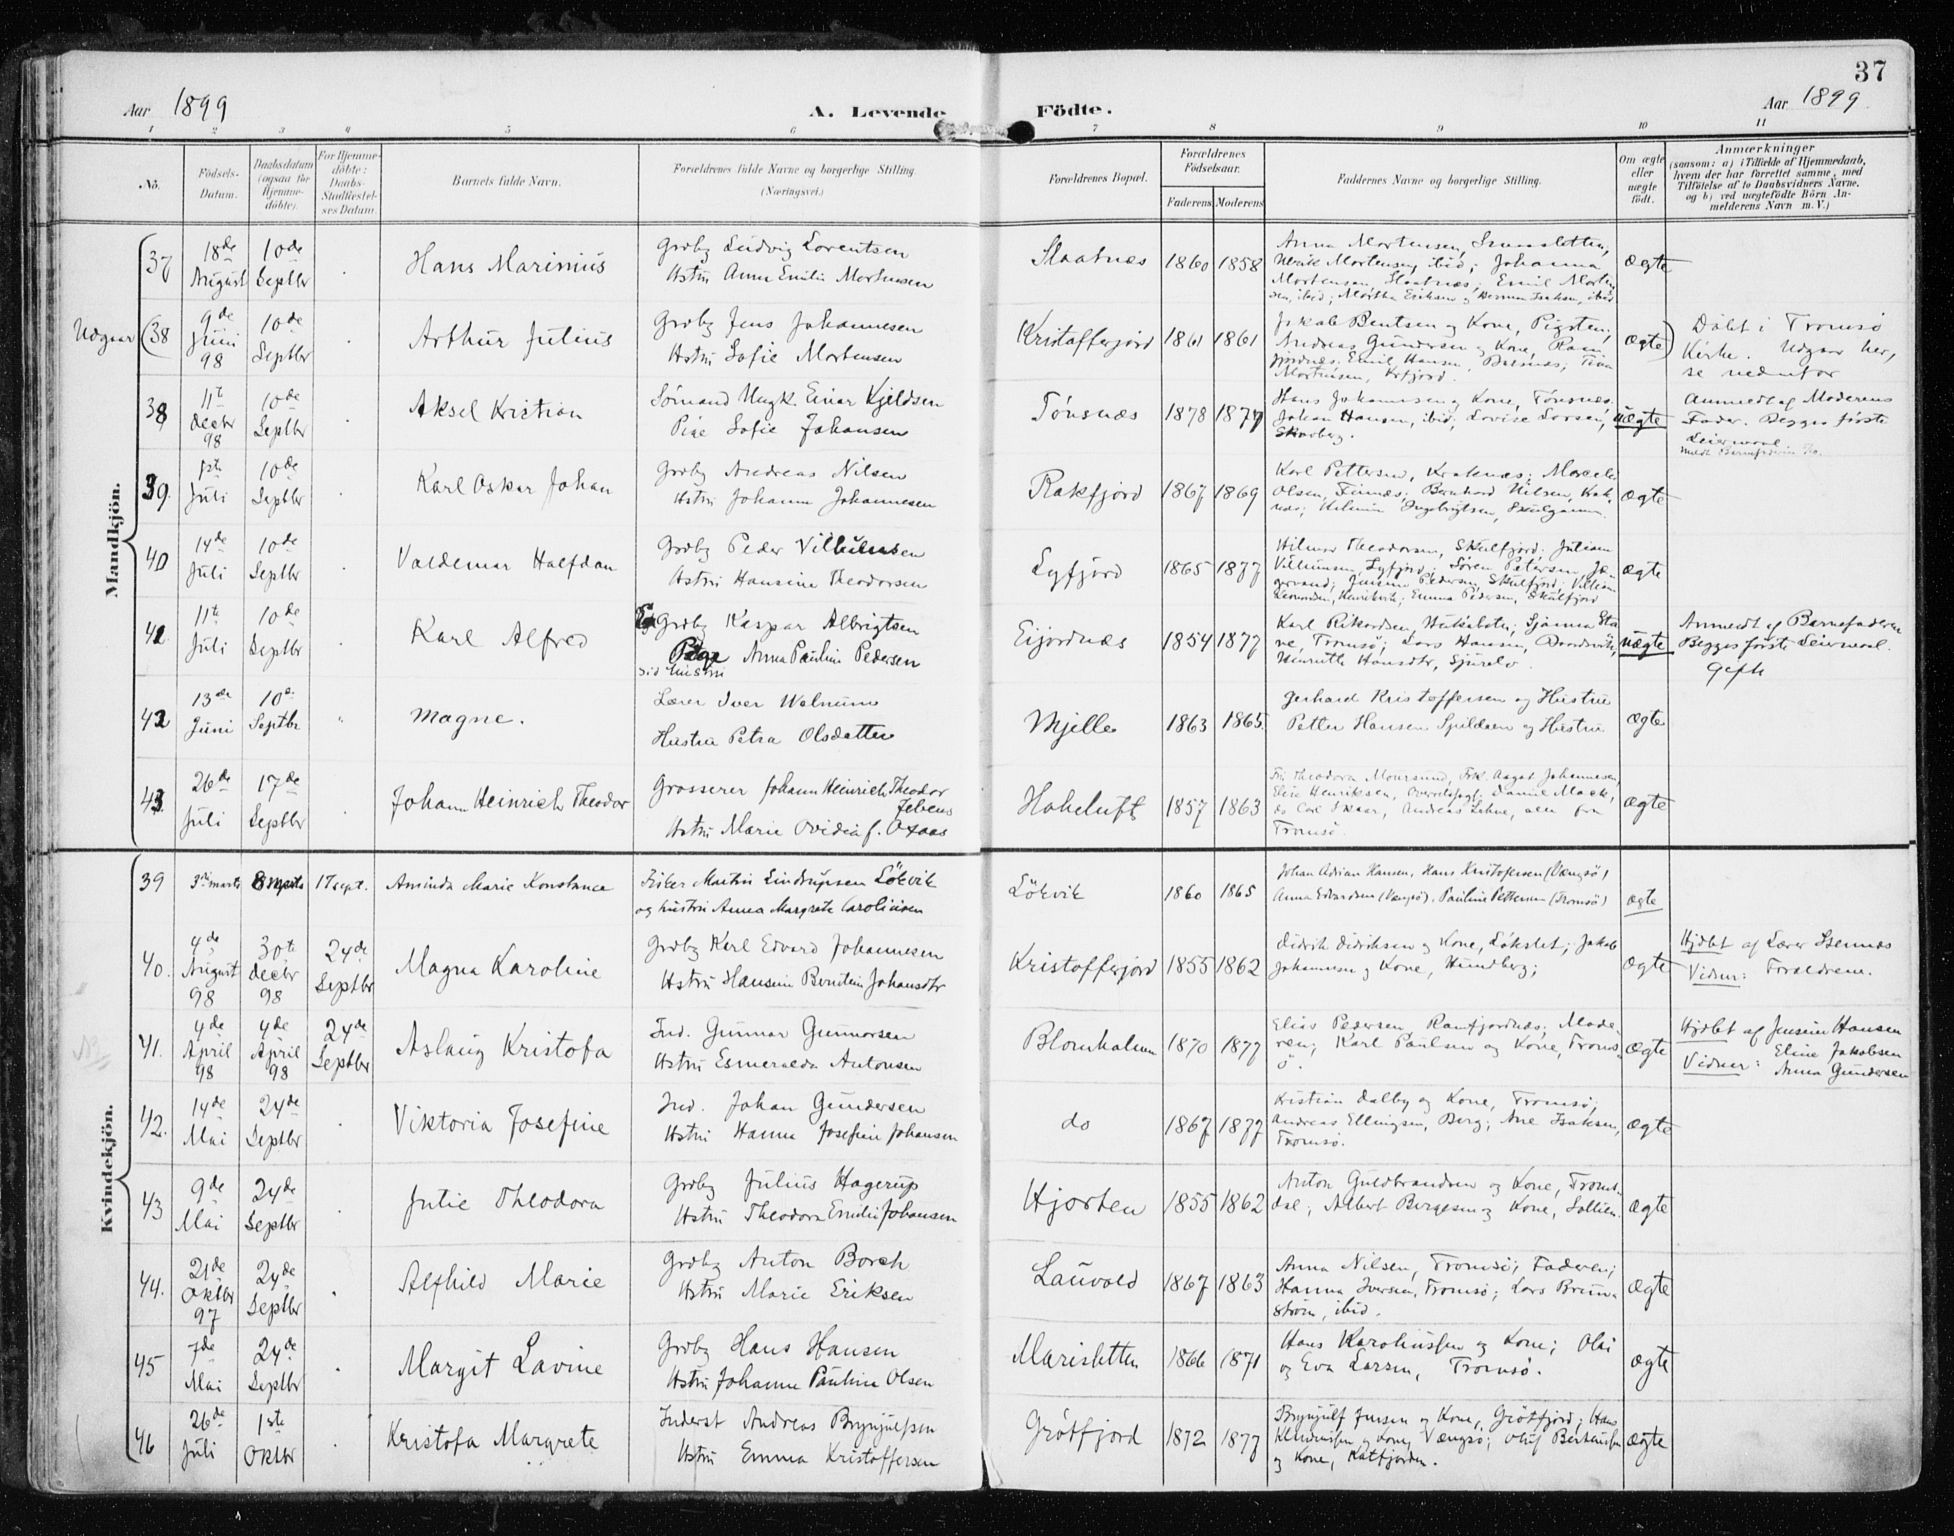 37
Aar 1899
A. Levende Födte.
Aar 1899.
1 2 3 4 5 6 7 8 9 10 11
No. Födsels-Datum. Daabsdatum (ogsaa for Hjemmedöbte). For Hjemmedöbte: Daabs-Stadfæstelses Datum. Barnets fulde Navn. Forældrenes fulde Navne og borgerlige Stilling (Næringsvei.) Forældrenes Bopæl. Forældrenes Födselsaar. Faderens Moderens Faddernes Navne og borgerlige Stilling. Om ægte eller uægte født. Anmærkninger (saasom: a) i Tilfælde af Hjemmedaab, hvem der har forrettet samme, med Tilföielse af to Daabsvidners Navne. og b) ved uægtefödte Börn Anmelderens Navn m. V.)
Mandkjön.
37 18de August 10de Septbr Hans Marinius Grdbg Ludvig Lorentsen
Hstru Anna Emilie Mortensen
Slaatnæs 1860 1858 Anna Mortensen,
Ulrik Mortensen, ibid; Johanna
Mortensen, Slaatnæs; Emil Morten
sen, ibid; Martha Eriksen og Isaksen, ibid
ægte
Udgaar (38 9de Juni 98 10de Septbr Arthur Julius Grdbg Jens Johannesen
Hstru Sofie Mortensen
Kristofferjord 1861 1861 Jakob Bentsen og Kone, Pigsten;
Andreas Gundersen og Kone, Ram
fjordnæs; Emil Hansen, Trine
Mortensen, Krfjord.
ægte) Døbt i Tromsø
Kirke. Udgaar her,
se nedenfor
38 11te Decbr 98 10de Septbr Aksel Kristian Sømand Ungk. Einar Kjeldsen
Pige Sofie Johansen
Tønsnæs 1878 1877 Hans Johannesen og Kone, Tønsnæs
Johan Hansen, ibid, Lovise Larsen,
Skavberg.
uægte Anmeldt af Moderens
Fader. Begges første
Leiermaal.
39. 1ste Juli 10de Septbr Karl Oskar Johan Grdbg Andreas Nilsen
Hstru Johanna Johannesen
Rakfjord 1867 1869 Karl Pettersen, Kraknæs; Marcelie
Olsen, Finnæs; Bernhard Nilsen, Krak
næs; Ingebrigtsen, Skulgammen.
ægte
40 14de Juli 10de Septbr Valdemar Halfdan Grdbg Peder Vilhelmsen
Hstru Hansine Theodorsen
Lyfjord 1865 1877 Hilmar Theodorsen, Skulfjord; Julian
Vilhelmsen, Lyfjord; Søren Petersen,
Jensine Pedersen, Skulfjord;
Emma Pedersen, Skulfjord
ægte
41 11te Juli 10de Septbr Karl Alfred Grdbg Kaspar Albrigtsen
Pige Anna Pauline Pedersen
Eijordnæs 1854 1877 Karl Rikardsen,
Tromsø; Lars Hansen,
Henrikke Hansdtr, Sjurelv.
uægte Anmeldt af Barnefaderen
Begges første Leiermaal.
Gift
42 13de Juni 10de Septbr Magne. Lærer Iver Walnum
Hustru Petra Olsdatter
Mjelle 1863 1865. Gerhard Kristoffersen og Hustru
Petter Hansen Spildern og Hustru
ægte
43 26de Juli 17de Septbr Johann Heinrich Theodor Grosserer Johann Heinrich Theodor
Jebens
Hstru Marie Ovidia f. Oxaas
Hoheluft 1857 1863 Fru Theodora Moursund, Frk. Aagot Johannesen,
Elise Henriksen, Daniel Mack,
do Carl Skaar, Andreas Lehne, alle fra
Tromsø.
ægte
Kvindekjön.
39 3de marts 17 sept. Aminda Marie Konstance Fisker Martin Lindrupsen Lökvik
og hustru Anna Margrete Carolinsen
Lökvik 1860 1865 Johan Adrian Hansen, Hans Kristofersen (Vængsø)
Anna Edvardsen (Vængsø). Pauline Pettersen (Tromsø)
ægte
40. 4de August 98 30te Decbr 98 24de Septbr Magna Karoline Grdbg Karl Edvard Johannesen
Hstru Hansine Berntine Johansdtr
Kristofferjord 1855 1862 Didrik Didriksen og Kone, Løkslet; Jakob
Johannesen og Kone, Hundberg;
ægte Hjdbt af Lærer Isennæs
Vidner: Forældrene.
41. 4de April 98 4de April 98 24de Septbr Aslaug Kristofa Ind. Gunnar Gunnarsen
Hstru Esmeralda Antonsen
Blomhalsen 1870 1877 Elias Pedersen, Ramfjordnæs; Mode-
ren; Karl Paulsen og Kone, Troms-
ø.
ægte Hjdbt af Jensine Hansen
Vidner: Eline Jakobsen
Anna Gundersen
42. 14de Mai 24de Septbr Viktoria Josefine Ind. Johan Gundersen
Hstru Hanna Josefine Johansen
do 1867 1877 Kristian Dalby og Kone, Tromsø;
Andreas Ellingsen, Berg; Ane Isaksen,
Tromsø.
ægte
43 9de Mai 24de Septbr Julie Theodora Grdbg Julius Hagerup
Hstru Theodora Emilie Johansen
Hjorten 1855 1862 Anton Guldbrandsen og Kone, Troms-
dal; Albert Børgesen og Kone, Sollien.
ægte
44. 21de Oktbr 97 24de Septbr Alfhild Marie Grdbg Anton Borch
Hstru Marie Eriksen
Lauvold 1867 1863 Anna Nilsen, Tromsø; Faderen;
Hanna Iversen, Tromsø; Lars Brun
strøm, ibid.
ægte
45 7de Mai 24de Septbr Margit Lavine Grdbg Hans Hansen
Hstru Johanna Pauline Olsen
Marisletten 1866 1871 Hans Karoliussen og Kone; Olai
og Eva Larsen, Tromsø.
ægte
46 26de Juli 1ste Oktbr Kristofa Margrete Inderst Andreas Brynjulfsen
Hstru Emma Kristoffersen
Grøtfjord 1872 1877 Brynjulf Jensen og Kone, Grøtfjord; Hans
og Kone, Vængsø; Oluf Bertheussen
og Kone, Katfjorden.
ægte